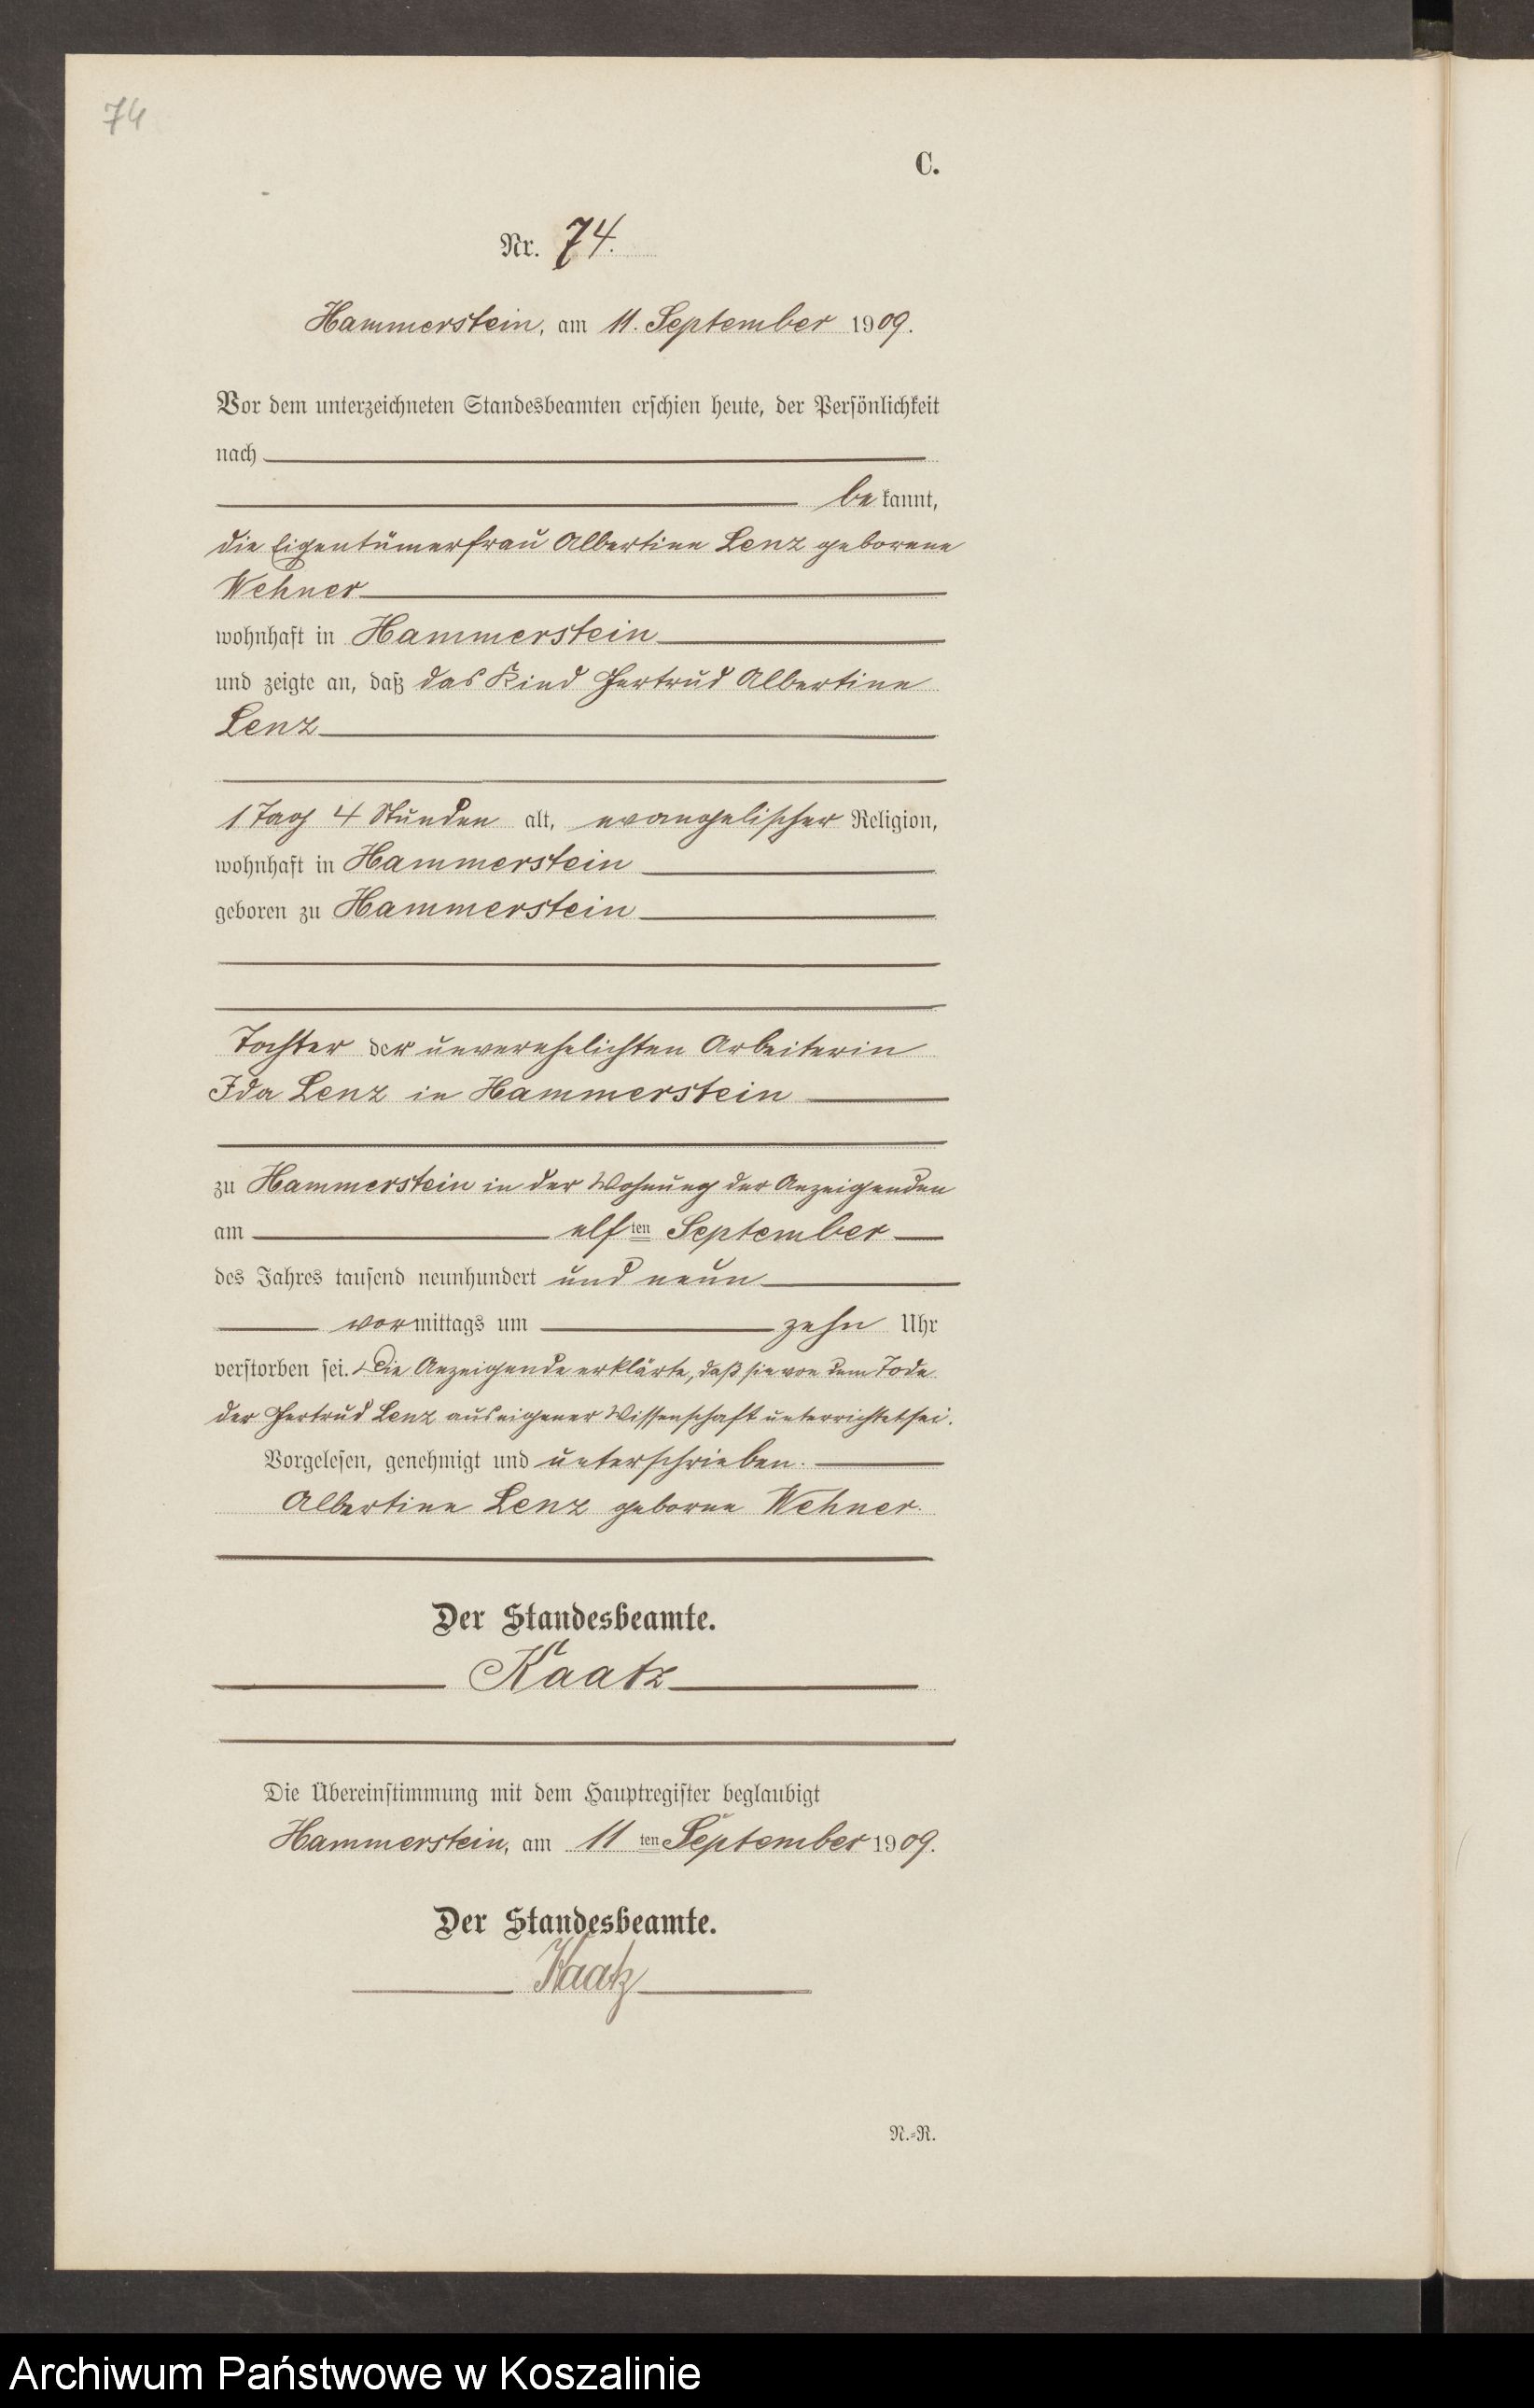 74
C.
Nr. 74.
Hammerstein, am 11. September 1909.
Vor dem unterzeichneten Standesbeamten erschien heute, der Persönlichkeit
nach
bekannt,
die Eigentümerfrau Albertine Lenz geborene
Wehner
wohnhaft in Hammerstein
und zeigte an, daß das Kind Gertrud Albertine
Lenz
1 Tag 4 Stunden alt, evangelischer Religion,
wohnhaft in Hammerstein
geboren zu Hammerstein
Tochter der unverehelichten Arbeiterin
Ida Lenz in Hammerstein
zu Hammerstein in der Wohnung der Anzeigenden
am elften September
des Jahres tausend neunhundert und neun
vormittags um zehn Uhr
verstorben sei. Die Anzeigende erklärte, daß sie von dem Tode
der Gertrud Lenz aus eigener Wissenschaft unterrichtet sei.
Vorgelesen, genehmigt und unterschrieben.
Albertine Lenz geborne Wehner.
Der Standesbeamte.
Kaatz
Die Übereinstimmung mit dem Hauptregister beglaubigt
Hammerstein, am 11ten September 1909.
Der Standesbeamte.
Kaatz
N.-R.
Archiwum Państwowe w Koszalinie